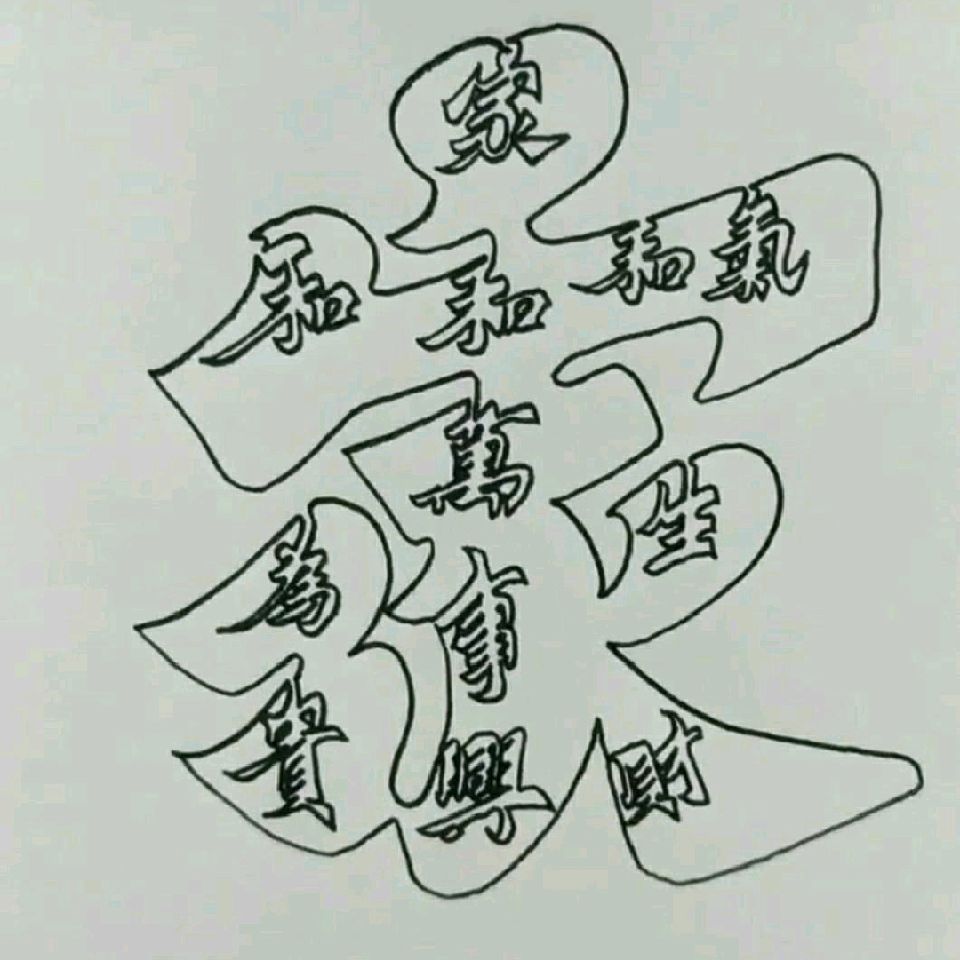 家
家和萬事興
和氣生財
和為貴